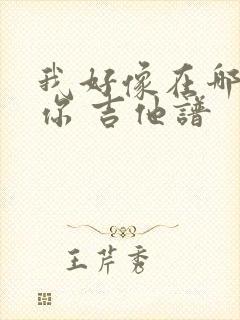 我好像在哪
你 吉他譜
王芹秀